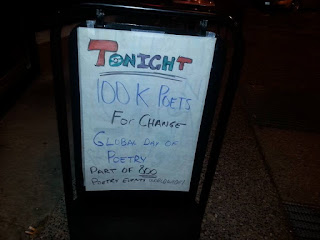 TONIGHT
100K POETS
FOR CHANGE
GLOBAL DAY OF
POETRY
PART OF 800
POETRY EVENTS WORLDWIDE!